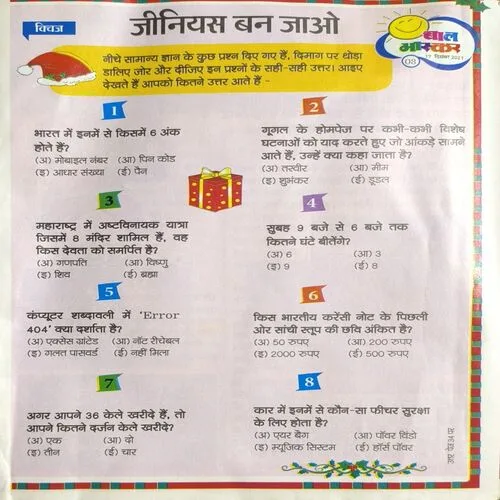 क्विज
जीनियस बन जाओ
बाल
भास्कर
03
17 दिसम्बर 2021
नीचे सामान्य ज्ञान के कुछ प्रश्न दिए गए हैं, दिमाग पर थोड़ा
डालिए जोर और दीजिए इन प्रश्नों के सही-सही उत्तर। आइए
देखते हैं आपको कितने उत्तर आते हैं -
1
भारत में इनमें से किसमें 6 अंक
होते हैं?
(अ) मोबाइल नंबर (आ) पिन कोड
(इ) आधार संख्या (ई) पैन
2
गूगल के होमपेज पर कभी-कभी विशेष
घटनाओं को याद करते हुए जो आंकड़े सामने
आते हैं, उन्हें क्या कहा जाता है?
(अ) तस्वीर (आ) मीम
(इ) शुभंकर (ई) डूडल
3
महाराष्ट्र में अष्टविनायक यात्रा
जिसमें 8 मंदिर शामिल हैं, वह
किस देवता को समर्पित है?
(अ) गणपति (आ) विष्णु
(इ) शिव (ई) ब्रह्मा
4
सुबह 9 बजे से 6 बजे तक
कितने घंटे बीतेंगे?
(अ) 6 (आ) 3
(इ) 9 (ई) 8
5
कंप्यूटर शब्दावली में 'Error
404' क्या दर्शाता है?
(अ) एक्सेस ग्रांटेड (आ) नॉट रीचेबल
(इ) गलत पासवर्ड (ई) नहीं मिला
6
किस भारतीय करेंसी नोट के पिछली
ओर सांची स्तूप की छवि अंकित है?
(अ) 50 रुपए (आ) 200 रुपए
(इ) 2000 रुपए (ई) 500 रुपए
7
अगर आपने 36 केले खरीदे हैं, तो
आपने कितने दर्जन केले खरीदे?
(अ) एक (आ) दो
(इ) तीन (ई) चार
8
कार में इनमें से कौन-सा फीचर सुरक्षा
के लिए होता है?
(अ) एयर बैग (आ) पॉवर विंडो
(इ) म्यूजिक सिस्टम (ई) हॉर्स पॉवर
उत्तर पेज 34 पर